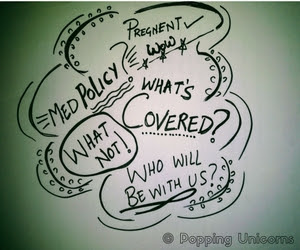 PREGNENT ✓
WOW
MED POLICY
WHAT'S
COVERED?
WHAT
NOT!
WHO WILL
BE WITH US?
© Popping Unicorns